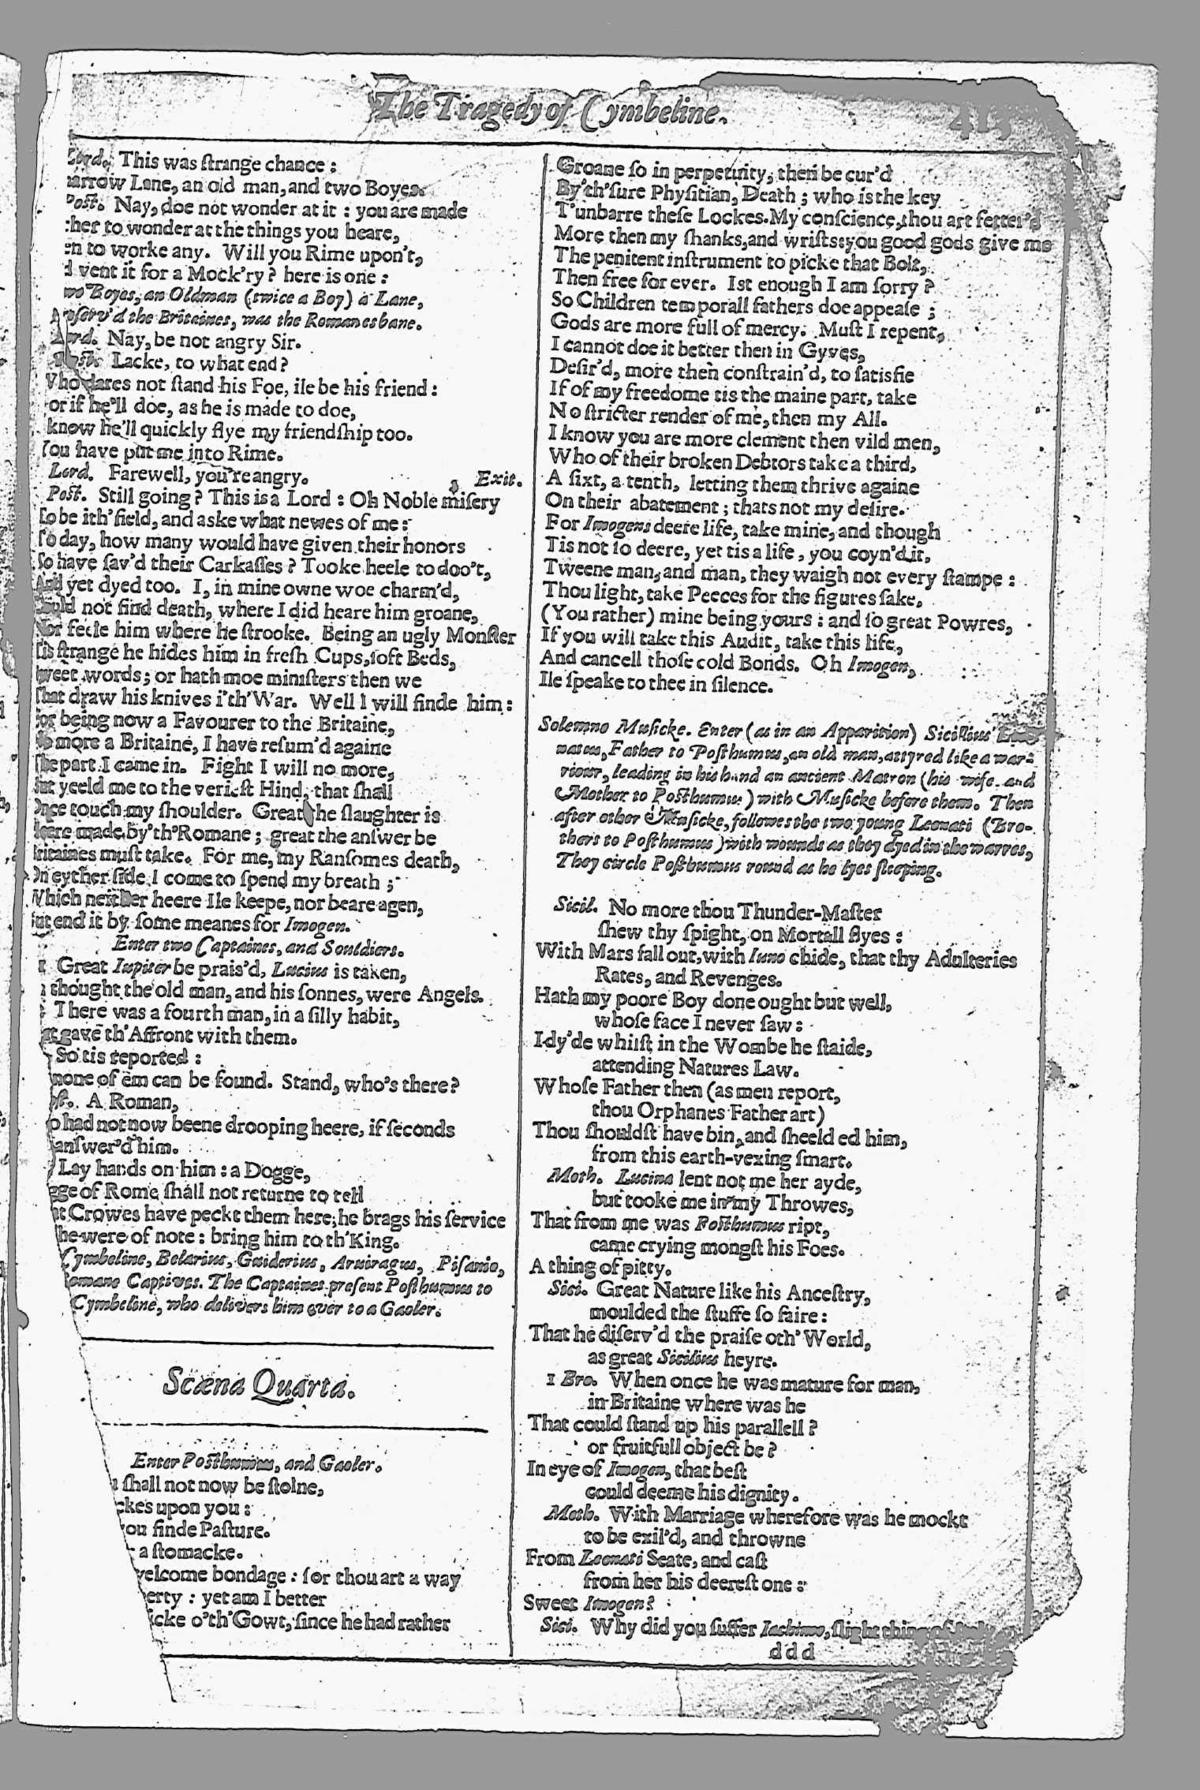 The Tragedy of Cymbeline. 415
Lord. This was ſtrange chance:
arrow Lane, an old man, and two Boyes.
Poſt. Nay, doe not wonder at it: you are made
ther to wonder at the things you heare,
en to worke any. Will you Rime upon't,
d vent it for a Mock'ry? here is one:
wo Boyes, an Oldman (twice a Boy) a Lane,
reſerv'd the Britaines, was the Romanes bane.
Lord. Nay, be not angry Sir.
Poſt. Lacke, to what end?
Who dares not ſtand his Foe, ile be his friend:
or if he'll doe, as he is made to doe,
know he'll quickly flye my friendſhip too.
You have put me into Rime.
Lord. Farewell, you're angry. Exit.
Poſt. Still going? This is a Lord: Oh Noble miſery
To be ith'field, and aske what newes of me:
To day, how many would have given their honors
So have ſav'd their Carkaſſes? Tooke heele to doo't,
And yet dyed too. I, in mine owne woe charm'd,
Could not find death, where I did heare him groane,
Nor feele him where he ſtrooke. Being an ugly Monſter
Tis ſtrange he hides him in freſh Cups, ſoft Beds,
weet words; or hath moe miniſters then we
That draw his knives i'th'War. Well I will finde him:
For being now a Favourer to the Britaine,
No more a Britaine, I have reſum'd againe
The part I came in. Fight I will no more,
But yeeld me to the verieſt Hind, that ſhall
Once touch my ſhoulder. Great the ſlaughter is
Heere made by'th'Romane; great the anſwer be
Britaines muſt take. For me, my Ranſomes death,
On eyther ſide I come to ſpend my breath;
Which neither heere Ile keepe, nor beare agen,
But end it by ſome meanes for Imogen.
Enter two Captaines, and Souldiers.
1 Great Iupiter be prais'd, Lucius is taken,
thought the old man, and his ſonnes, were Angels.
There was a fourth man, in a ſilly habit,
at gave th'Affront with them.
So tis reported:
none of em can be found. Stand, who's there?
oſt. A Roman,
o had not now beene drooping heere, if ſeconds
anſwer'd him.
Lay hands on him: a Dogge,
gge of Rome ſhall not returne to tell
at Crowes have peckt them here; he brags his ſervice
he were of note: bring him to th'King.
Cymbeline, Belarius, Guiderius, Arviragus, Piſanio,
omane Captives. The Captaines preſent Poſthumus to
Cymbeline, who delivers him over to a Gaoler.
Scæna Quarta.
Enter Poſthumus, and Gaoler.
u ſhall not now be ſtolne,
ckes upon you:
ou finde Paſture.
a ſtomacke.
welcome bondage: for thou art a way
erty: yet am I better
icke o'th'Gowt, ſince he had rather
Groane ſo in perpetuity, then be cur'd
By'th'ſure Phyſitian, Death; who is the key
T'unbarre theſe Lockes. My conſcience, thou art fetter'd
More then my ſhanks, and wriſts: you good gods give me
The penitent inſtrument to picke that Bolt,
Then free for ever. Iſt enough I am ſorry?
So Children temporall fathers doe appeaſe;
Gods are more full of mercy. Muſt I repent,
I cannot doe it better then in Gyves,
Deſir'd, more then conſtrain'd, to ſatisfie
If of my freedome tis the maine part, take
No ſtricter render of me, then my All.
I know you are more clement then vild men,
Who of their broken Debtors take a third,
A ſixt, a tenth, letting them thrive againe
On their abatement; thats not my deſire.
For Imogens deere life, take mine, and though
Tis not ſo deere, yet tis a life, you coyn'd it,
Tweene man, and man, they waigh not every ſtampe:
Thou light, take Peeces for the figures ſake,
(You rather) mine being yours: and ſo great Powres,
If you will take this Audit, take this life,
And cancell thoſe cold Bonds. Oh Imogen,
Ile ſpeake to thee in ſilence.
Solemne Muſicke. Enter (as in an Apparition) Sicillius Leo-
natus, Father to Poſthumus, an old man, attyred like a war-
riour, leading in his hand an ancient Matron (his wife, and
Mother to Poſthumus) with Muſicke before them. Then
after other Muſicke, followes the two young Leonati (Bro-
thers to Poſthumus) with wounds as they dyed in the warres,
They circle Poſthumus round as he lyes ſleeping.
Sicil. No more thou Thunder-Maſter
ſhew thy ſpight, on Mortall flyes:
With Mars fall out, with Iuno chide, that thy Adulteries
Rates, and Revenges.
Hath my poore Boy done ought but well,
whoſe face I never ſaw:
I dy'de whilſt in the Wombe he ſtaide,
attending Natures Law.
Whoſe Father then (as men report,
thou Orphanes Father art)
Thou ſhouldſt have bin, and ſheelded him,
from this earth-vexing ſmart.
Moth. Lucina lent not me her ayde,
but tooke me in my Throwes,
That from me was Poſthumus ript,
came crying mongſt his Foes.
A thing of pitty.
Sici. Great Nature like his Anceſtry,
moulded the ſtuffe ſo faire:
That he diſerv'd the praiſe oth' World,
as great Sicilius heyre.
1 Bro. When once he was mature for man,
in Britaine where was he
That could ſtand up his parallell?
or fruitfull object be?
In eye of Imogen, that beſt
could deeme his dignity.
Moth. With Marriage wherefore was he mockt
to be exil'd, and throwne
From Leonati Seate, and caſt
from her his deereſt one:
Sweet Imogen?
Sici. Why did you ſuffer Iachimo, ſlight thing of
ddd